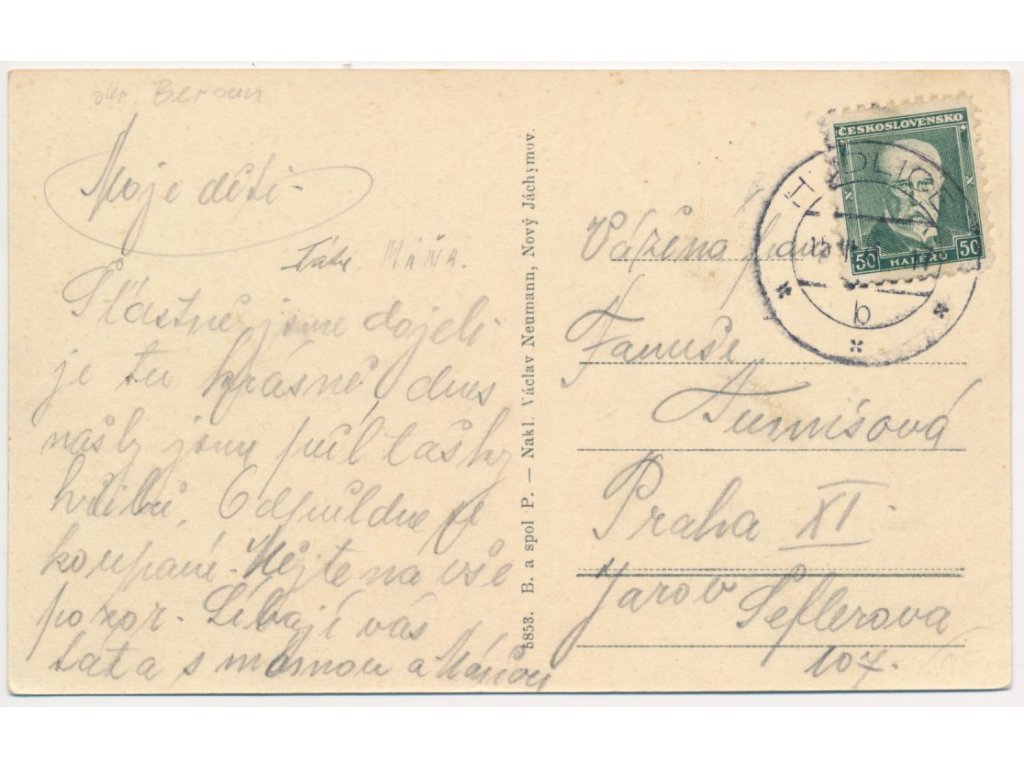 okr Beroun
Moje děti -
Táta Máňa.
Šťastně jsme dojeli
je tu krásně, dnes
našly jsme půl tašky
hřibů, Odpůldne je
koupané - Mějte na vše
pozor - Líbají vás
táta s mamou a Máňou
5853. B. a spol P. — Nakl. Václav Neumann, Nový Jáchymov.
ČESKOSLOVENSKO
50 HALÉŘŮ 50
b
Vážená
Fanuše
Tumišová
Praha XI
Jarov Seflerova
107.